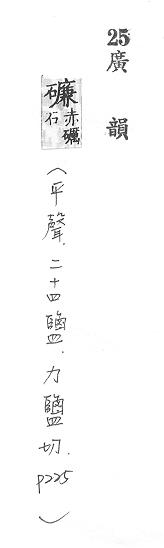 25廣韻
𥖝赤礪石
（平聲．二十四鹽．力鹽切．P225）